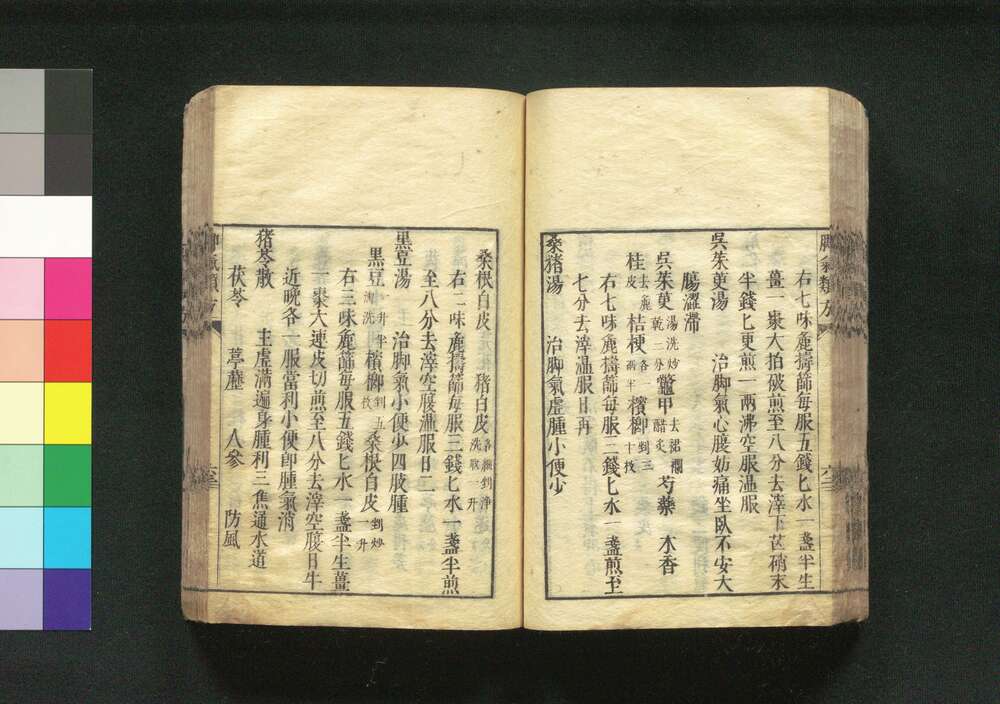 脚氣類方
右七味麁擣篩每服五錢匕水一盞半生
薑一棗大拍破煎至八分去滓下芒硝末
半錢匕更煎一兩沸空服温服
吳茱萸湯 治脚氣心腹妨痛坐臥不安大
腸澀滯
吳茱萸湯洗炒乾二分 鼈甲去裙襴醋炙 芍藥 木香
桂去麁皮 桔梗各一兩半 檳榔剉三十枚
右七味麁擣篩每服二錢匕水一盞煎至
七分去滓温服日再
桑豬湯 治脚氣虛腫小便少
桑根白皮 豬白皮
右二味麁擣篩每服三錢匕水一盞半煎
至八分去滓空腹温服日二
黑豆湯 治脚氣小便少四肢腫
黑豆淘洗一升半 檳榔剉五枚 桑根白皮剉炒一升
右三味麁篩每服五錢匕水一盞半生薑
一棗大連皮切煎至八分去滓空腹日午
近晚各一服當利小便卽腫氣消
猪苓散 主虛滿遍身腫利三焦通水道
茯苓 葶藶 人參 防風
脚氣類方